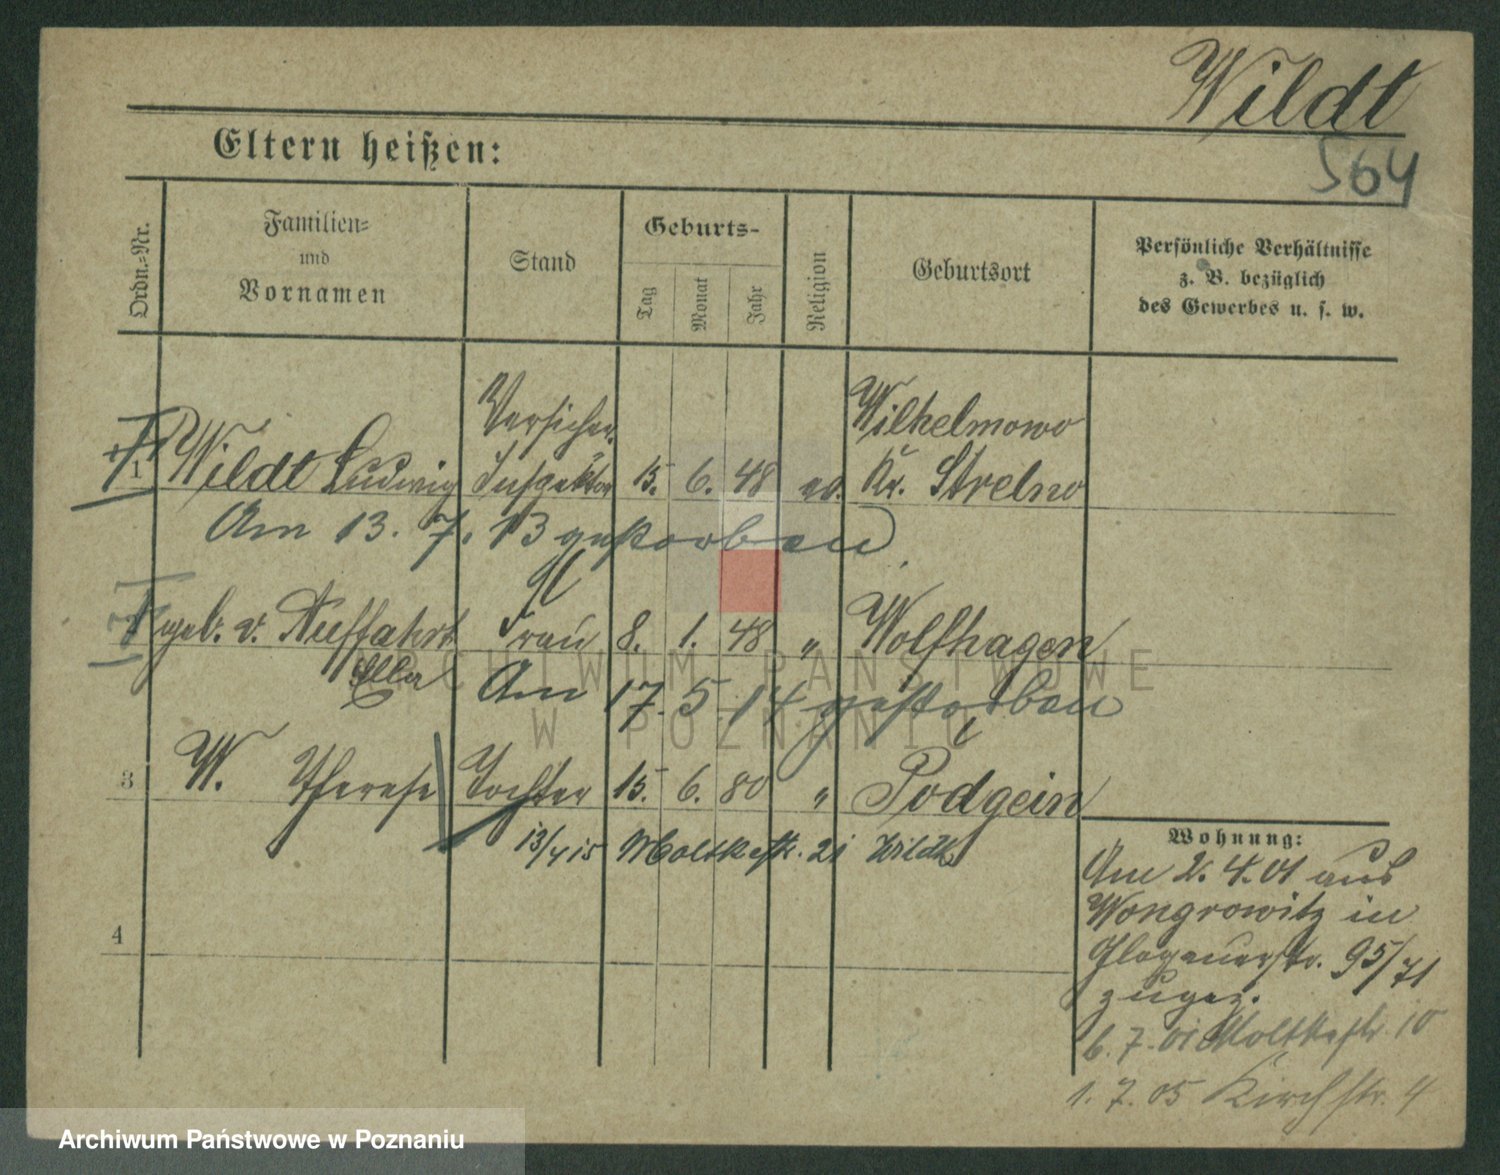 Wildt
564
Eltern heißen:
Ordn.-Nr.
Familien-
und
Vornamen
Stand
Geburts-
Tag
Monat
Jahr
Religion
Geburtsort
Persönliche Verhältnisse
z. B. bezüglich
des Gewerbes u. s. w.
Versicher.
Wilhelmowo
1 Wildt Ludwig Inspektor 15. 6. 48 ev. Kr. Strelno
Am 13. 7. 13 gestorben
geb. v. Frau 8. 1. 48 " Wolfhagen
Ella
Am 17. 5. 14 gestorben
3 W. Therese Tochter 15. 6. 80 " Podgein
13/4 15 Moltkestr. 21
4
Wohnung:
Am 2. 4. 01 aus
Wongrowitz in
Glogauerstr. 95/71
zugez.
6. 7. 01 Moltkestr. 10
1. 7. 05 Kirchstr. 4
ARCHIWUM PAŃSTWOWE
W POZNANIU
Archiwum Państwowe w Poznaniu